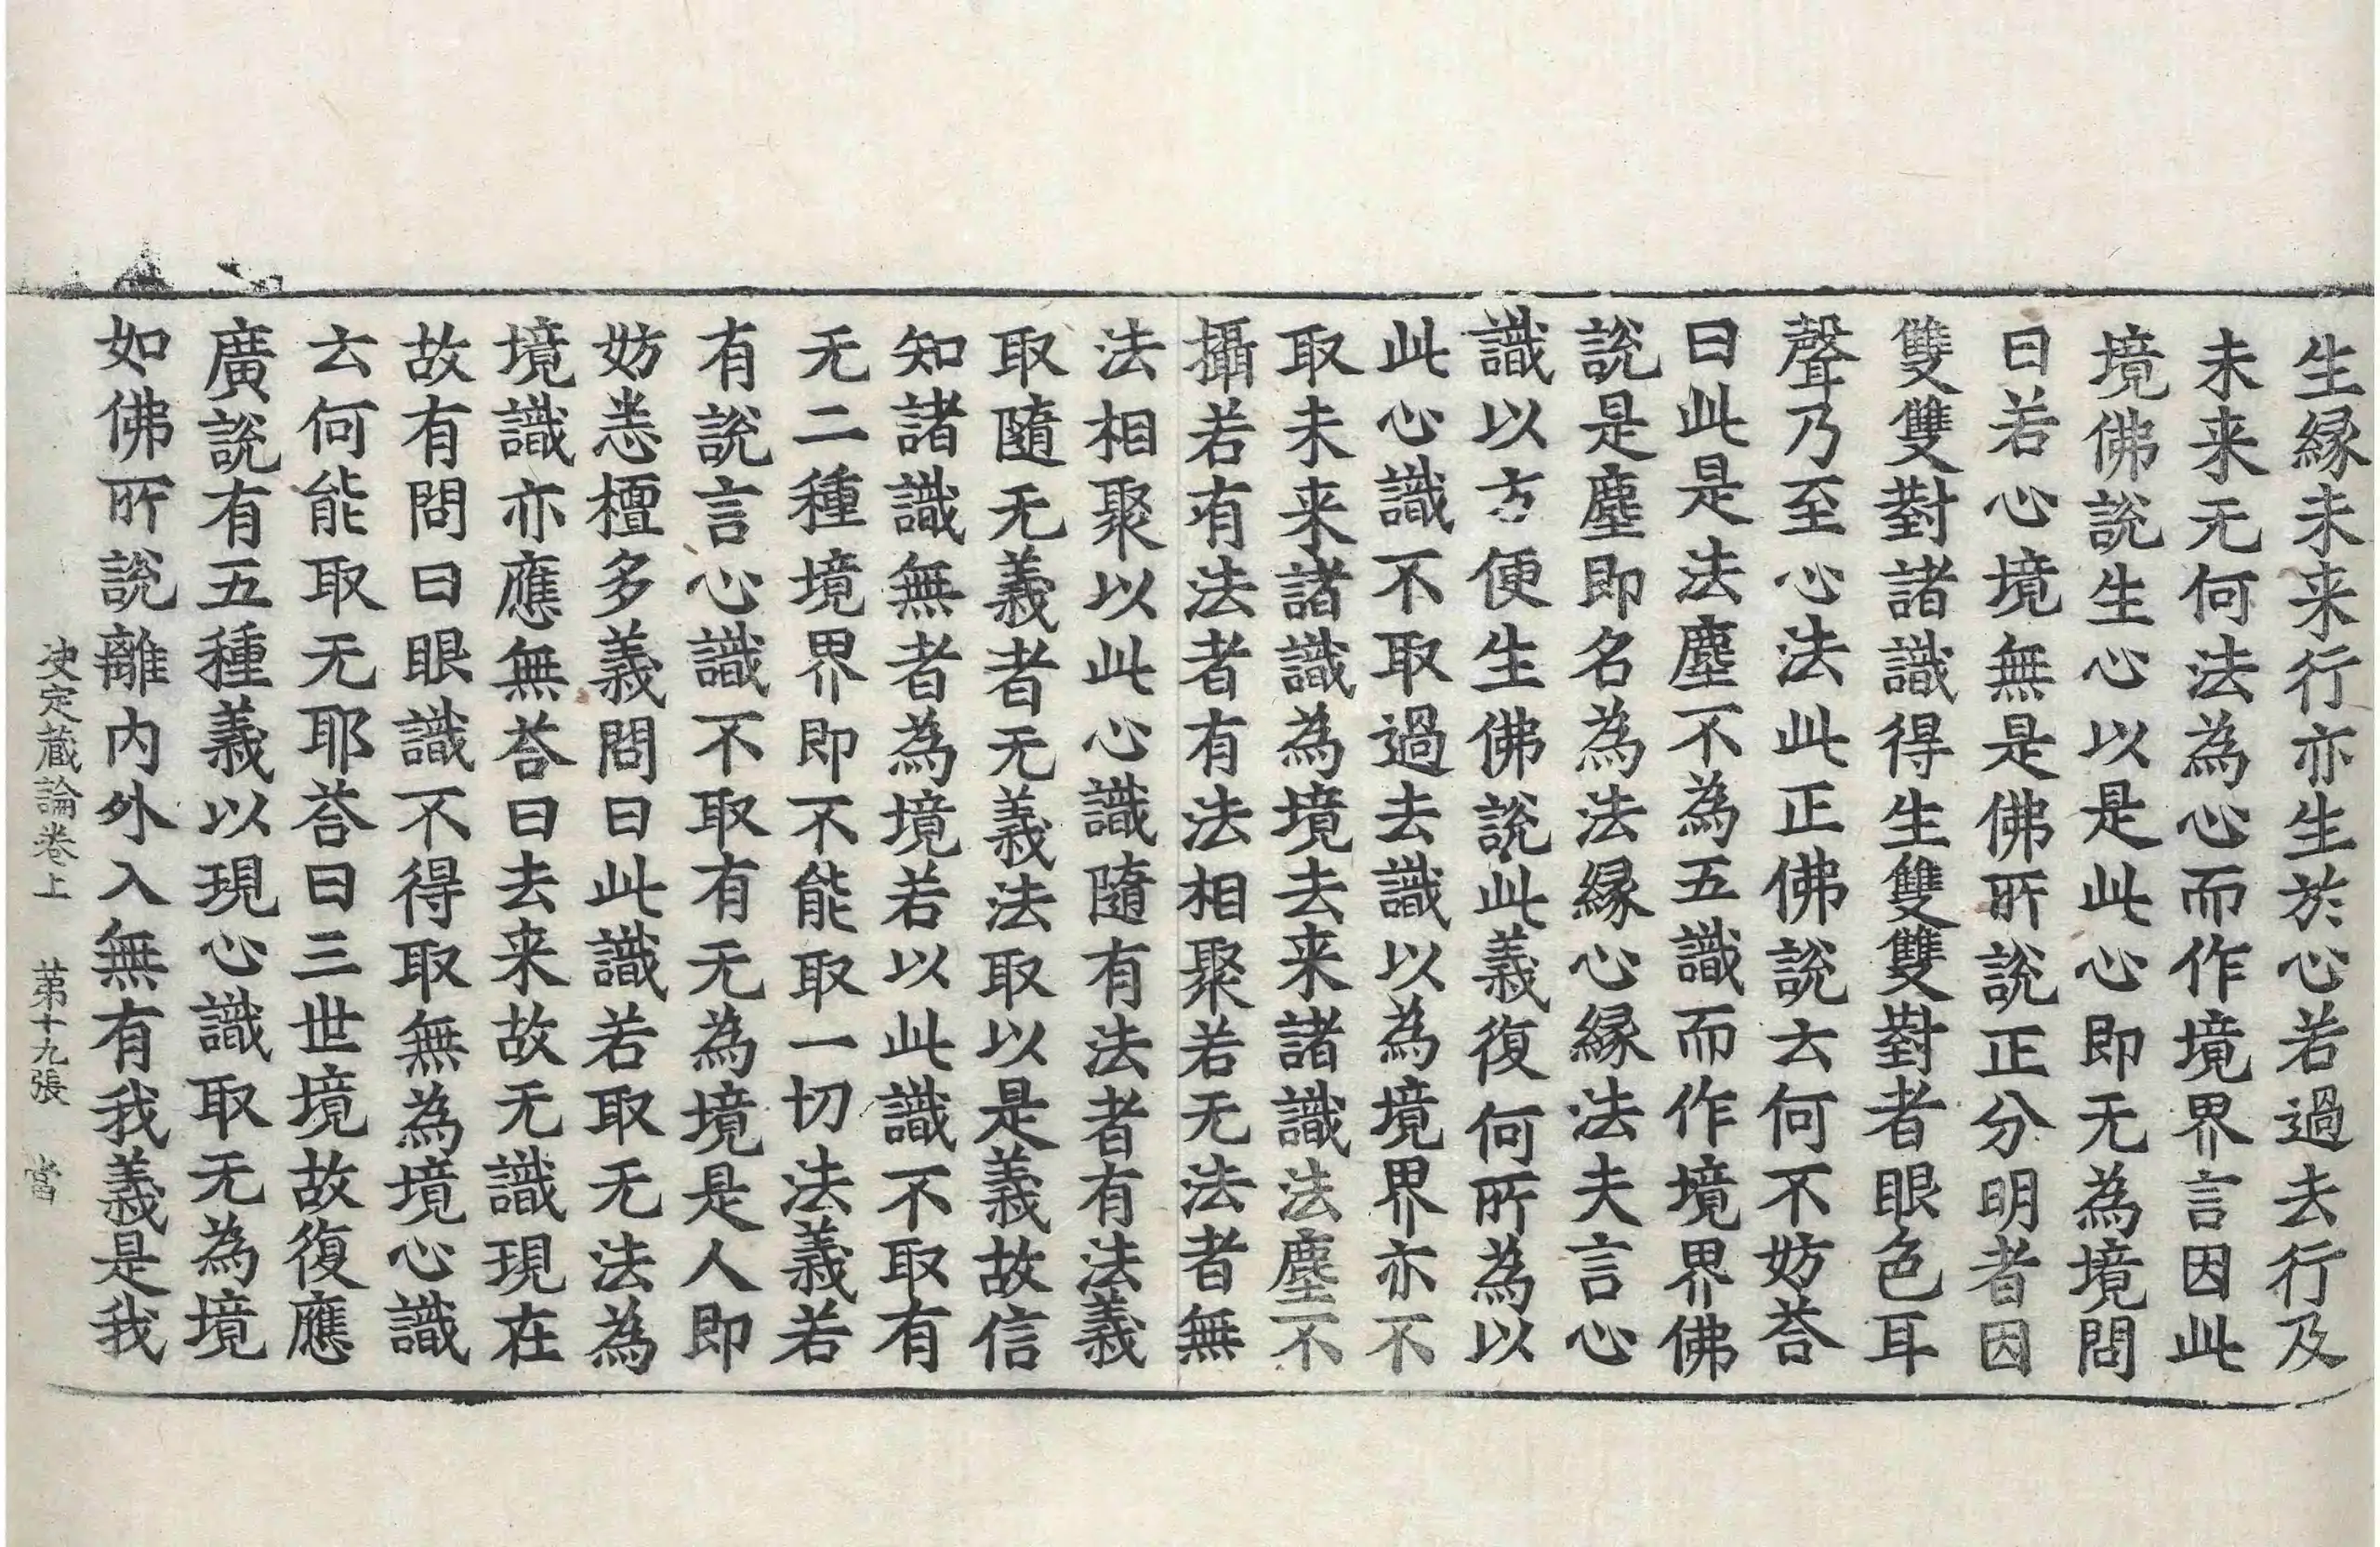 生緣未来行亦生於心若過去行及
未来无何法為心而作境界言因此
境佛說生心以是此心即无為境問
曰若心境無是佛所說正分明者因
雙雙對諸識得生雙雙對者眼色耳
聲乃至心法此正佛說云何不妨荅
曰此是法塵不為五識而作境界佛
說是塵即名為法緣心緣法夫言心
識以方便生佛說此義復何所為以
此心識不取過去識以為境界亦不
取未来諸識為境去来諸識法塵不
攝若有法者有法相聚若无法者無
法相聚以此心識隨有法者有法義
取隨无義者无義法取以是義故信
知諸識無者為境若以此識不取有
无二種境界即不能取一切法義若
有說言心識不取有无為境是人即
妨悉檀多義問曰此識若取无法為
境識亦應無荅曰去来故无識現在
故有問曰眼識不得取無為境心識
云何能取无耶荅曰三世境故復應
廣說有五種義以現心識取无為境
如佛所說離內外入無有我義是我
决定蔵論卷上　苐十九張　當